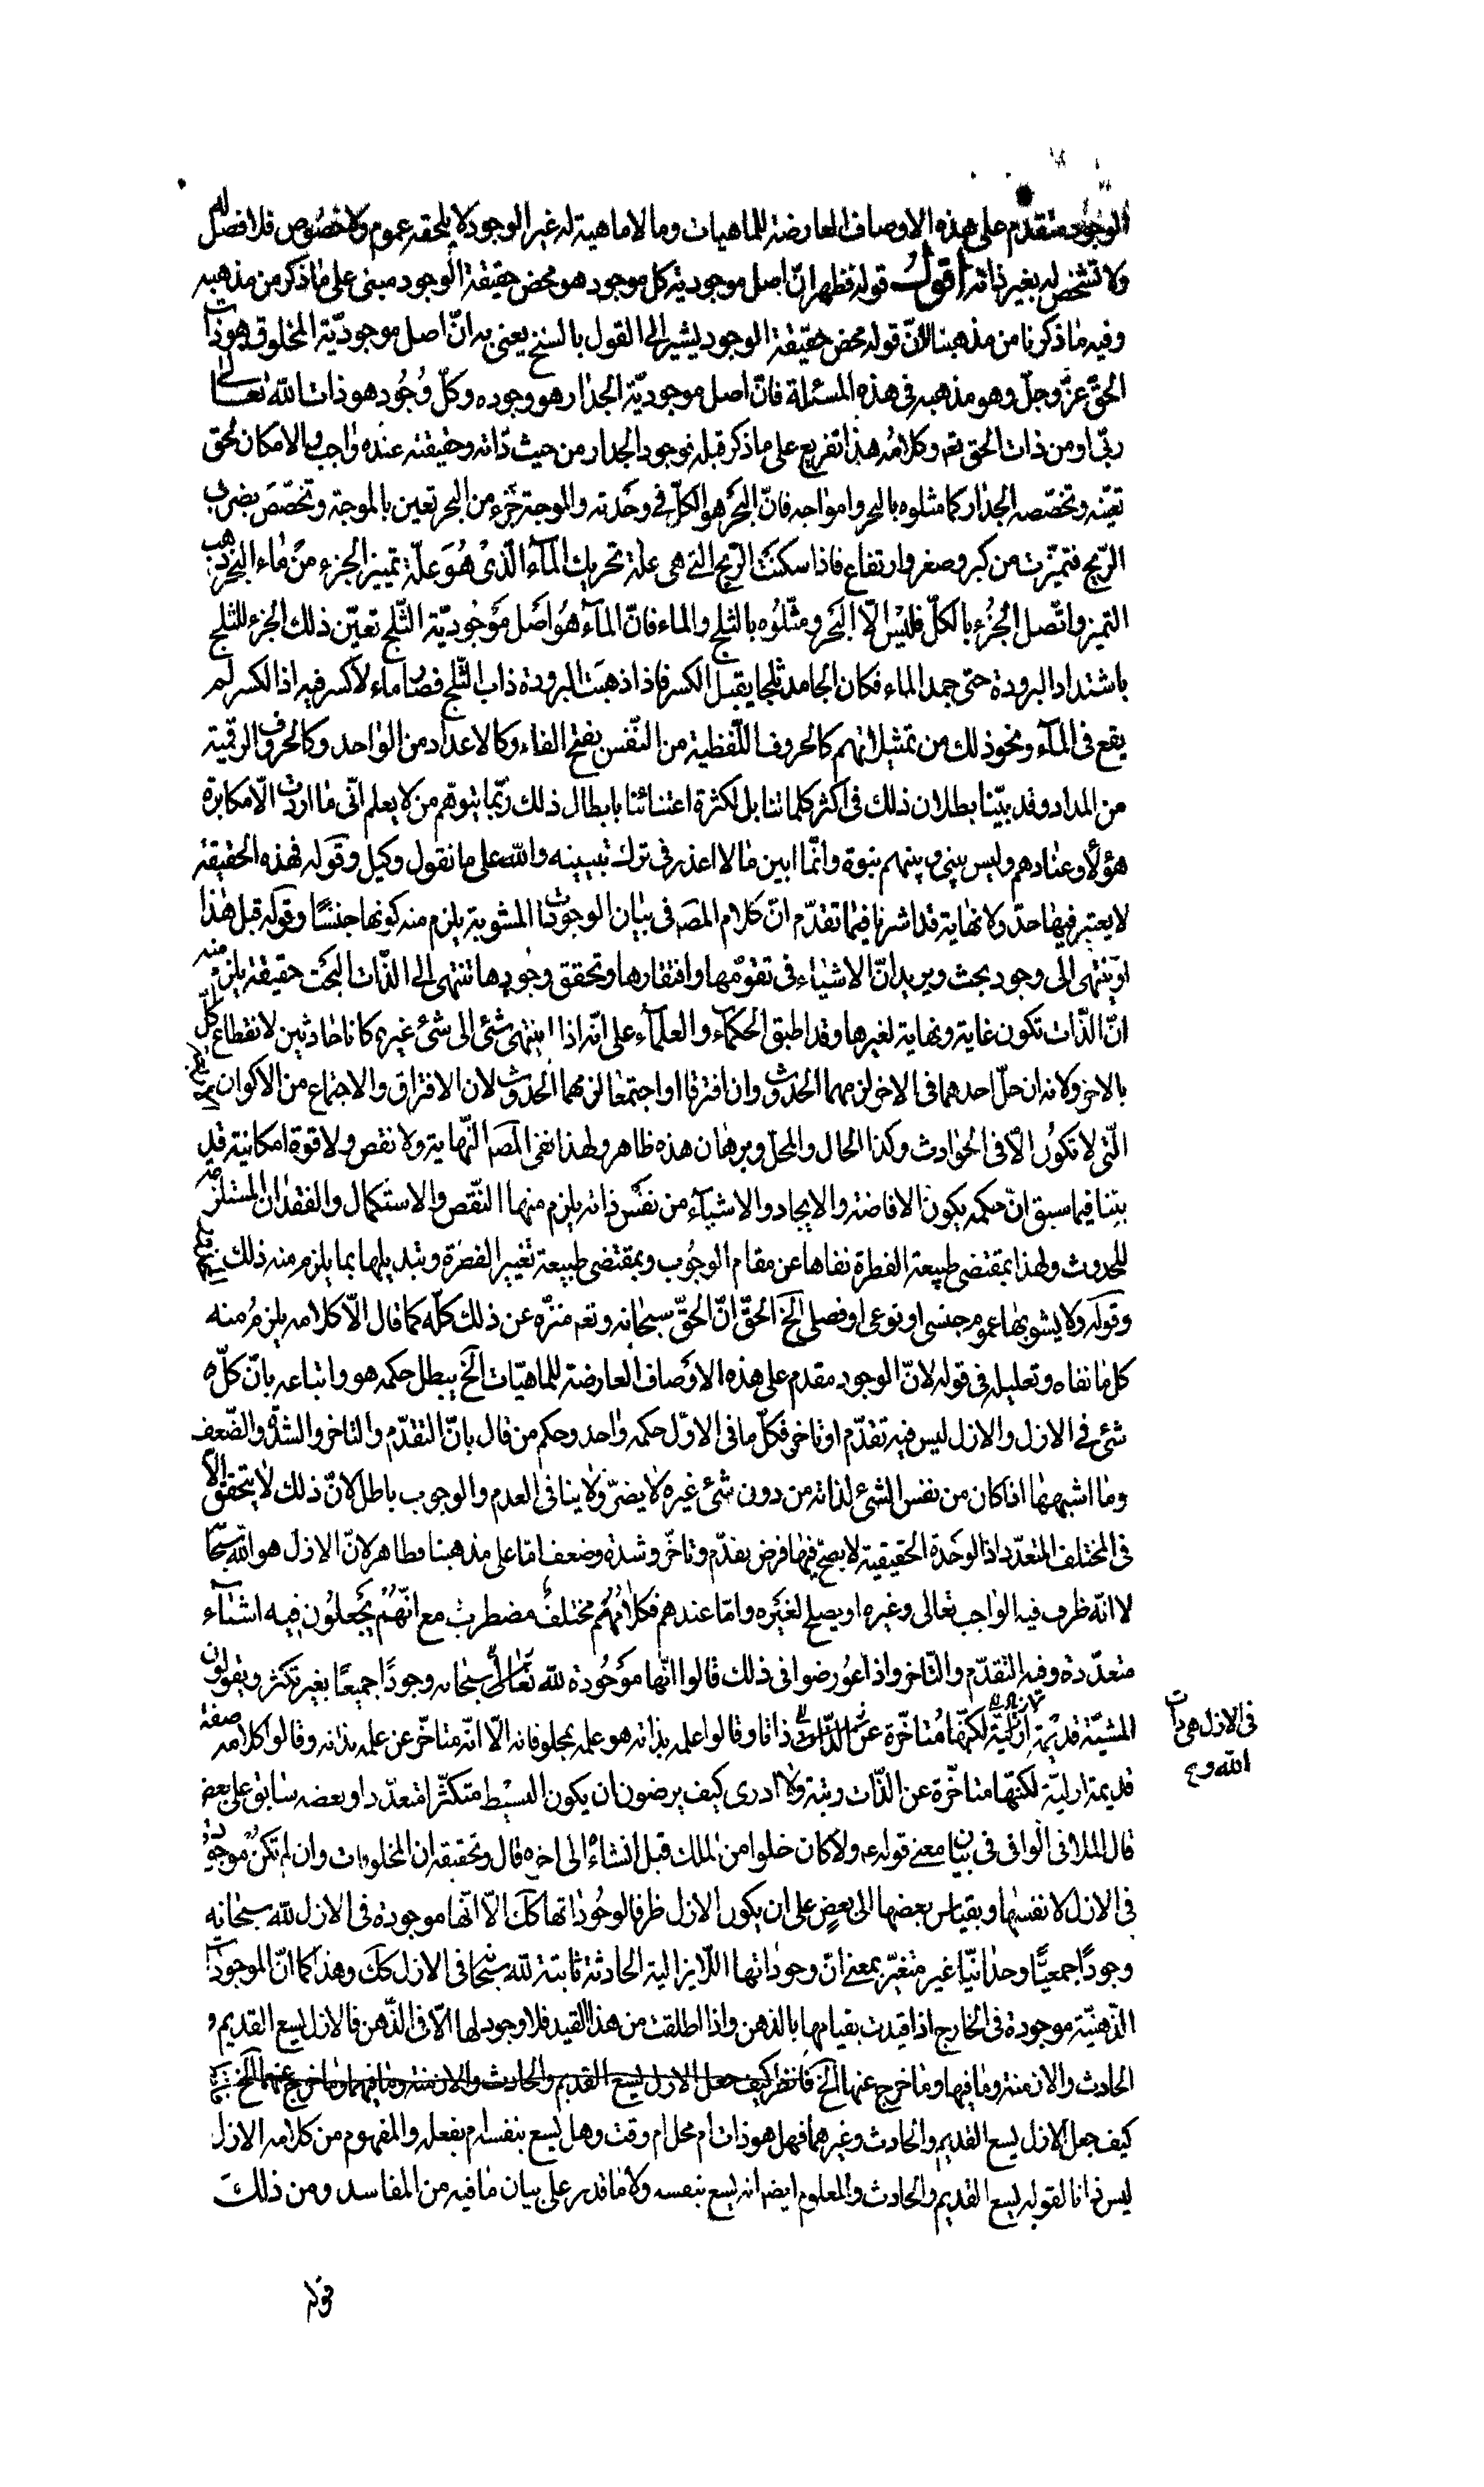 الوجود متقدم على هذه الاوصاف العارضة للماهيات وما لا ماهية له غير الوجود لا يلحقه عموم ولا خصوص فلا فصل له
ولا تشخص له بغير ذاته اقول قوله فظهر انّ اصل موجودية كل موجود هو محض حقيقة الوجود مبنى على ما ذكر من مذهبه
وفيه ما ذكرنا من مذهبنا لانّ قوله محض حقيقة الوجود يشير الى القول بالسنخ يعنى به انّ اصل موجوديّة المخلوق هو ذات
الحقّ عزّ وجلّ وهو مذهبه فى هذه المسئلة فانّ اصل موجوديّة الجدار هو وجوده وكلّ وُجُود هو ذات الله تعالى
ربّى او من ذات الحق تعم وكلامُه هذا تفريع على ما ذكر قبله فوجود الجدار من حيث ذاته وحقيقته عنده واجب والامكان لحق
تعيّنه وتخصّصه الجدار كما مثلوه بالبحر وامواجه فانّ البحر هو الكلّ فى وحدته والموجة جزء من البحر تعين بالموجة وتخصّصَ بضرب
الرّيح فتميّزت من كبر وصغر وارتفاع فاذا سكنت الرّيح التى هى علة تحريك المآء الّذى هُوَ علّة تمييز الجزء من ماء البحر ذهب
التميز واتّصل الجُزء بالكلّ فليْسَ الّا البَحر ومثّلوُه بالثلج والماء فانّ المآء هُو اَصْل مَوْجُوديّة الثّلج تعيّن ذلك الجزء للثلج
باشتداد البرودة حتى جمد الماء فكان الجامد ثلجا يقبل الكسر فاذا ذهبَت البرودة ذاب الثّلج فصار ماء لا كسر فيه اذ الكسر لم
يقع فى المآء ونحو ذلك من تمثيلاتهم كالحروف اللّفظية من النّفس بفتح الفاء وكالاعداد من الواحد وكالحروف الرقمية
من المداد وقد بيّنا بطلان ذلك فى اكثر كلماتنا بل لكثرة اعتنائنا بابطال ذلك ربّما يتوهّم من لا يعلم انّى ما اردت الّا مكابرة
هؤلاء وعنادهم وليس بينى وبينهم نبوة وانّما ابين ما لا اعذر فى ترك تبيينه والله على ما نقول وكيل وقوله فهذه الحقيقة
لا يعتبر فيها حدّ ولا نهاية قد اشرنا فيما تقدّم انّ كلام المصَ فى بيان الوجودات المشوبة يلزم منه كونها جنسًا وقوله قبل هذا
او ينتهى الى وجود بحث ويريد انّ الاشياء فى تقوّمها وافتقارها وتحقق وجودها تنتهى الى الذّات البحَت حقيقة يلزم منه
انّ الذّات تكون غاية ونهاية لغيرها وقد اطبق الحكمآء والعلمآء على انّه اذا انتهى شئ الى شئ غيره كانا حادثين لانقطاع كلّ
بالاخر ولانه ان حلّ احدهما فى الاخر لزمهما الحدوث وان افترقا او اجتمعا لزمهما الحدوث لان الافتراق والاجتماع من الاكوان
الّتى لا تكوُن الّا فى الحوادث وكذا الحال والمحلّ وبرهان هذه ظاهر ولهذا نفى المصَ النّهاية ولا نقص ولا قوة امكانية قد
بيّنا فيما سبق انّ حكمه بكون الافاضة والايجاد والاشيآء من نفس ذاته يلزم منهما النّقص والاستكمال والفقدان المستلزم
للحدوث ولهذا بمقتضى طبيعة الفطرة نفاها عن مقام الوجُوب وبمقتضى طبيعة تغيير الفطرة وتبديلها بما يلزم منه ذلك
وقوله ولا يشوبها عموم جنسى او نوعى او فصلى الخ الحقّ انّ الحقّ سبحانه وتعم منزّه عن ذلك كلّه كما قال الّا كلامه يلزمُ منه
كل ما نفاه وتعليله فى قوله لانّ الوجود مقدم على هذه الاوَصاف العارضة للماهيّات الخ يبطل حكمه هو واتباعه بانّ كلّ
شئ فى الازل والازل ليس فيه تقدّم او تاخر فكلّ ما فى الاوّل حكمه واحد وحكم من قال بانّ التقدّم والتاخر والشدّة والضّعف
وما اشبهها اذا كان من نفس الشئ لذاته من دون شئ غيره لا يضرّ ولا ينافى العدم والوجوب باطل لانّ ذلك لا يتحقق الّا
فى المختلف المتعدّد اذ الوحَدة الحقيقية لا يصحّ فيها فرض تقدّم وتاخّر وشدة وضعف امّا على مذهبنا فظاهر لانّ الازل هو الله سبحا
لا انّه ظرف فيه الواجب تعالى وغيره او يصلح لغيَره وامّا عندهم فكلامُهُم مختلفٌ مضطربٌ مع انّهُمْ يَجْعلوُن فيه اشياء
متعدّدة وفيه التقدّم والتاخر واذا عوُرضوا فى ذلك قالوا انّها موَجُودة لله تعالى سبحانه وجودًا جميعًا بغير تكثر ويقولون
المشيّة قديمة ازليّة لكنّها مُتاخّرة عن الذّات ذاتا وقالوا علمه بذاته هو علمه بمخلوقاته الّا انّه متاخّر عن علمه بذاته وقالوا كلامه صفة
فى الازل هى ذات
الله و
قديمة ازليّة لكنّها متاخّرة عن الذّات رتبة ولا ادرى كيف يرضون ان يكون البسيْط متكثّرا متعدّدا وبعضه سابق على بعض
قال الملا فى الوافى فى بيان معنى قوله ع ولا كان خلوا من الملك قبل انشائه الى اخره قال وتحقيقه ان المخلوقات وان لم تكنْ موجودة
فى الازل لانفسها وبقياس بعضها الى بعضٍ على ان يكون الازل ظرفا لوجُوداتها كك الّا انّها موجودة فى الازل لله سبحانه
وجودًا جمعيًّا وحدانيّا غير متغيّر بمعنى انّ وجوداتها اللّايزالية الحادثة ثابتة لله سبحا فى الازل كك وهذا كما انّ الموجودات
الذّهنيّة موجودة فى الخارج اذا قيدت بقيامها بالذهن واذا اطلقت من هذا القيد فلا وجود لها الّا فى الذّهن فالازل يسع القديم و
الحادث والازمنة وما فيها وما خرج عنها الخ فانظر كيف جعل الازل يسع القديم والحادث والازمنة وما فيها وما خرج عنها الخ
كيف جعل الازل يسع القديم والحادث وغيرهما فهل هو ذات ام محل ام وقت وهل يسع بنفسه ام بفعله والمفهوم من كلامه الازل
ليس ذاتا لقوله يسع القديم والحادث والمعلوم ايضا انه يسع بنفسه ولا ما قدر على بيان ما فيه من المفاسد ومن ذلكَ
قوله